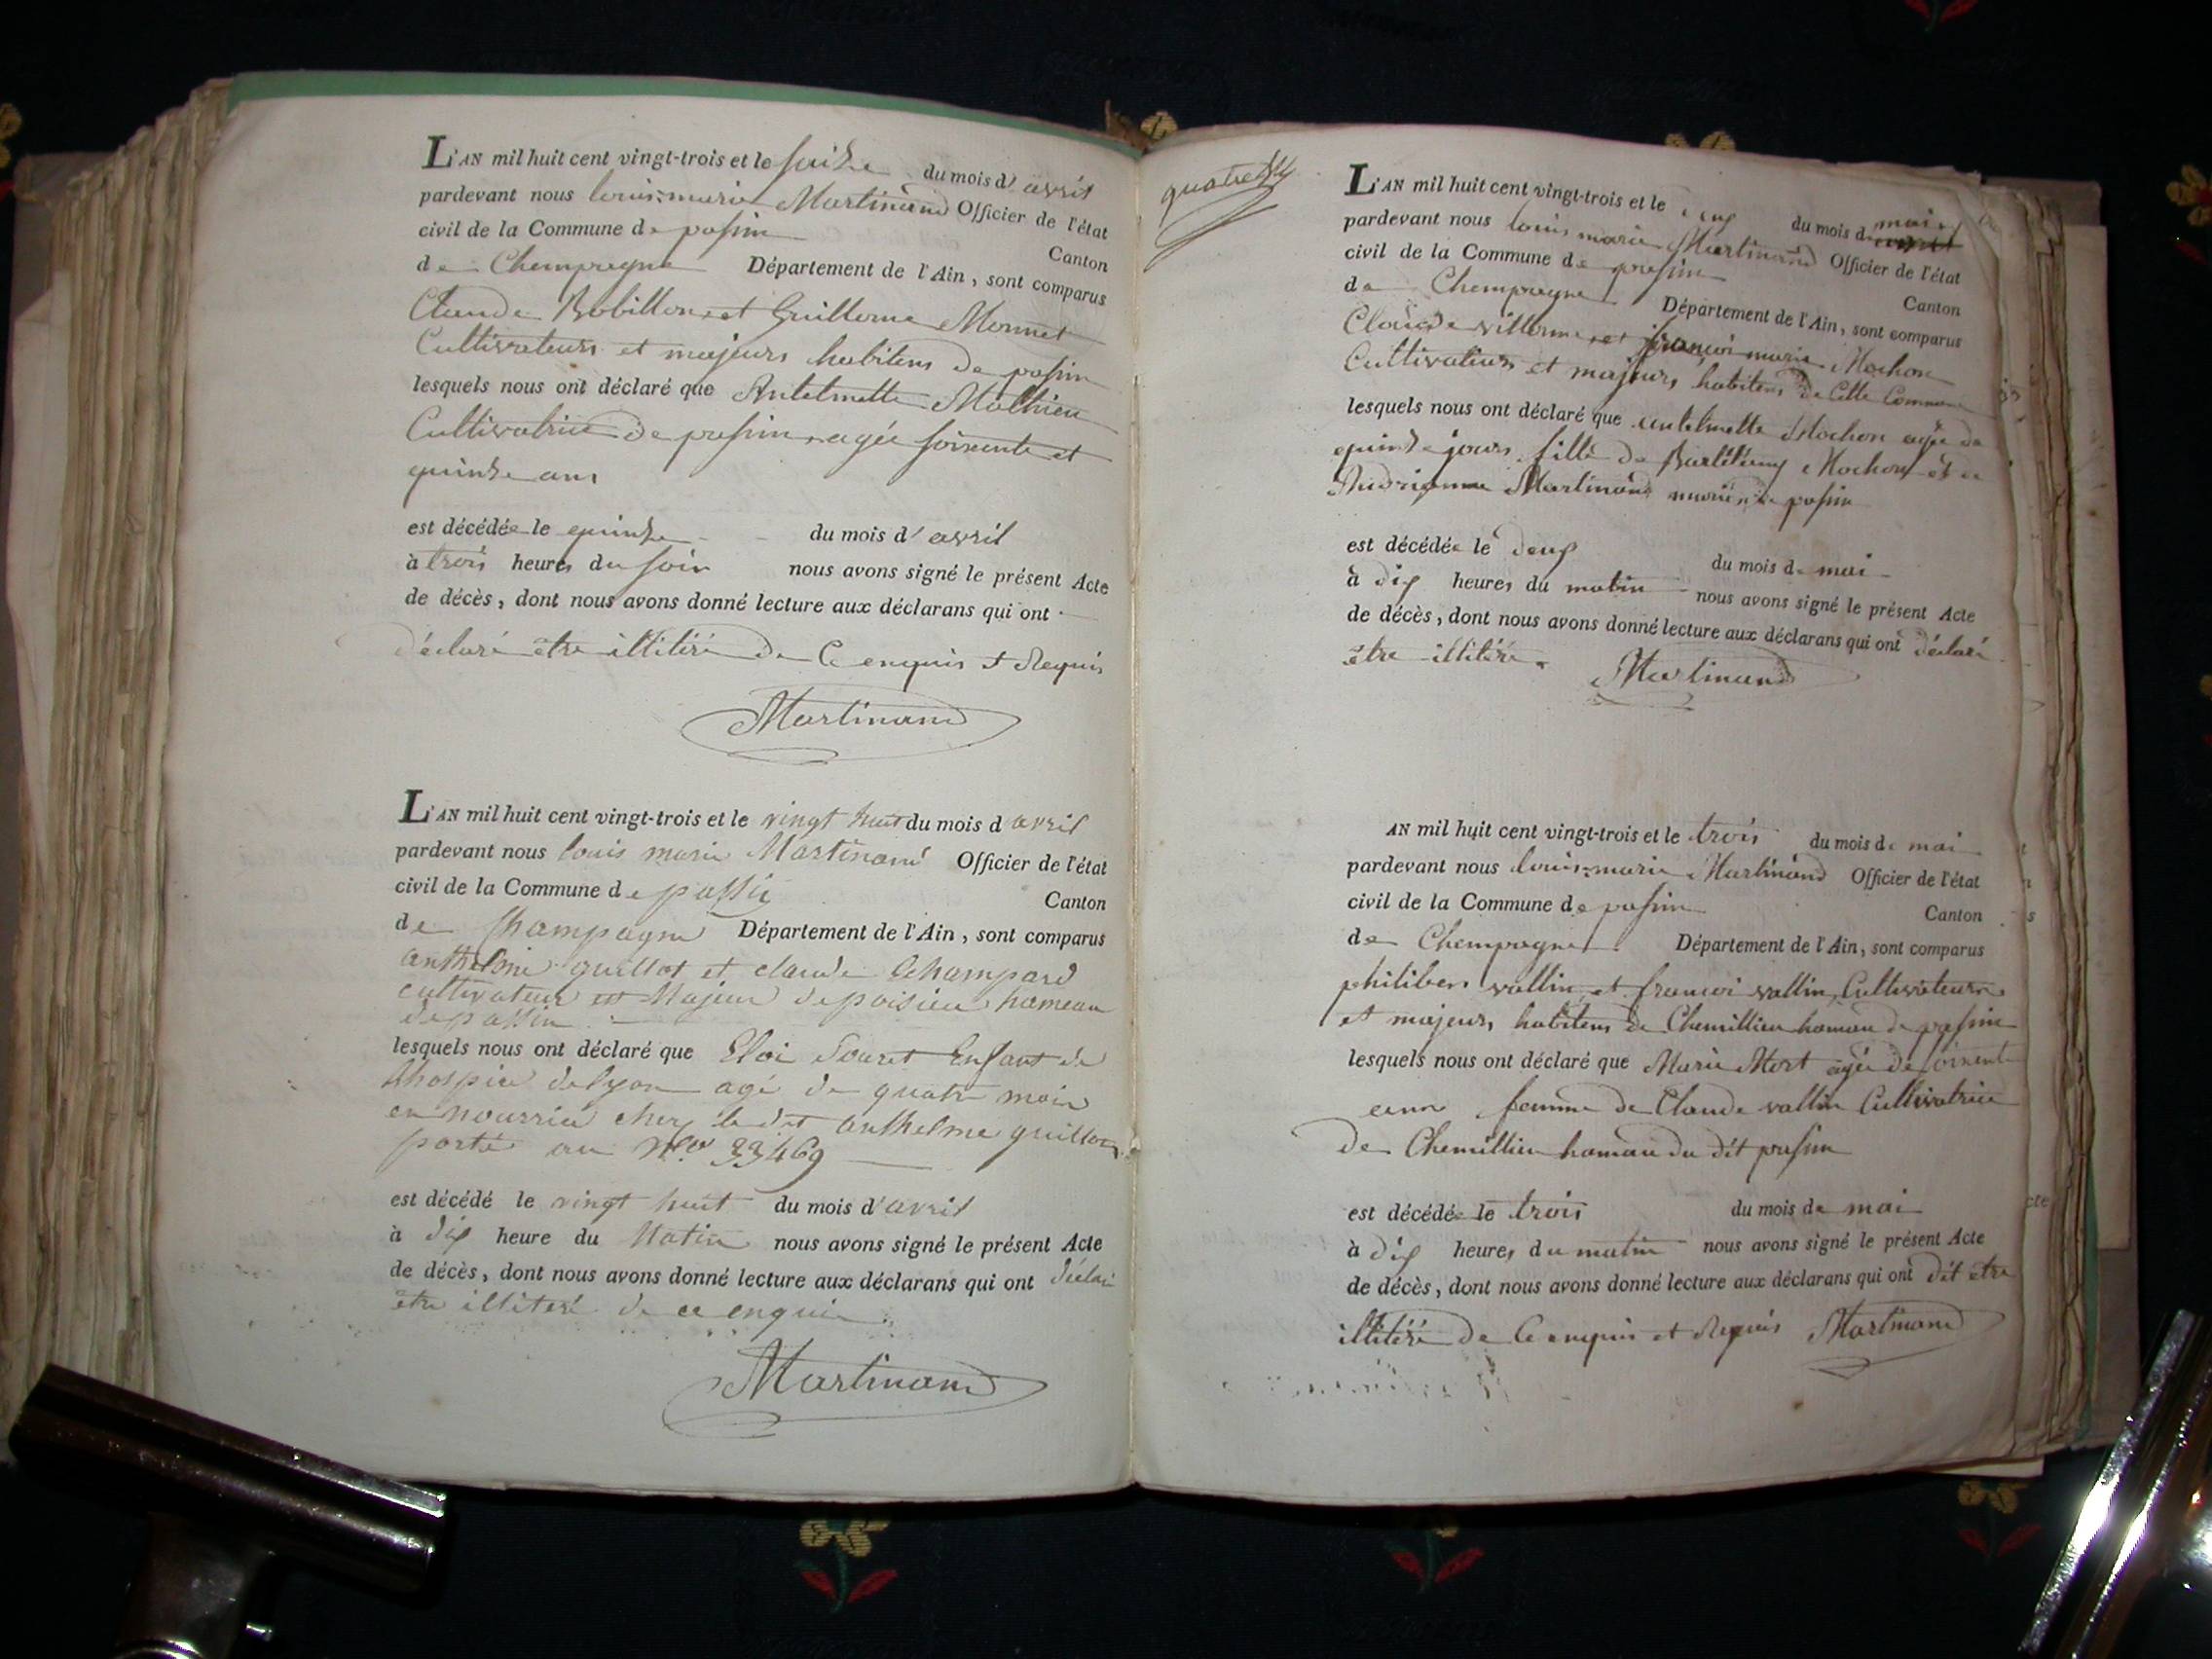 L'AN mil huit cent vingt-trois et le saize du mois d'avril
pardevant nous louis marie Martinand Officier de l'état
civil de la Commune de passin Canton
de Champagne Département de l'Ain, sont comparus
Claude Bobillon et Guillerme Monnet
Cultivateurs et majeurs habitens de passin
lesquels nous ont déclaré que Antelmette Mathieu
Cultivatrice de passin agée soixente et
quinze ans
est décédée le quinze du mois d'avril
à trois heures du soir nous avons signé le présent Acte
de décès, dont nous avons donné lecture aux déclarans qui ont
déclaré être illitéré de Ce enquis et Requis
Martinand
L'AN mil huit cent vingt-trois et le vingt huit du mois d'avril
pardevant nous louis marie Martinand Officier de l'état
civil de la Commune de passin Canton
de Champagne Département de l'Ain, sont comparus
anthelme guillot et claude Champard
cultivateur et Majeur de poisieu hameau
de passin
lesquels nous ont déclaré que Eloi Enfant de
lhospice de lyon agé de quatre mois
en nourrice chez le dit anthelme guillot
porté au N.o 33469
est décédé le vingt huit du mois d'avril
à dix heure du Matin nous avons signé le présent Acte
de décès, dont nous avons donné lecture aux déclarans qui ont déclaré
être illiteré de ce enquis
Martinand
quatre
L'AN mil huit cent vingt-trois et le deux du mois de mai
pardevant nous louis marie Martinand Officier de l'état
civil de la Commune de passin Canton
de Champagne Département de l'Ain, sont comparus
Claude villerme et françoi marie Mochon
Cultivateurs et majeurs habitens de Cette Commune
lesquels nous ont déclaré que antelmette Mochon agée de
quinze jours fille de Bartélémy Mochon et de
Andrianne Martinand mariés de passin
est décédée le deux du mois de mai
à dix heures du matin nous avons signé le présent Acte
de décès, dont nous avons donné lecture aux déclarans qui ont déclaré
être illitéré. Martinand
AN mil huit cent vingt-trois et le trois du mois de mai
pardevant nous louis marie Martinand Officier de l'état
civil de la Commune de passin Canton
de Champagne Département de l'Ain, sont comparus
philibert vallin et françoi vallin Cultivateurs
et majeurs habitens de Chemillieu hamau de passin
lesquels nous ont déclaré que Marie Mort agée de soixente
ann femme de Claude vallin Cultivatrice
de Chemillieu hamau du dit passin
est décédée le trois du mois de mai
à dix heures du matin nous avons signé le présent Acte
de décès, dont nous avons donné lecture aux déclarans qui ont dit être
illitéré de Ce enquis et Requis Martinand